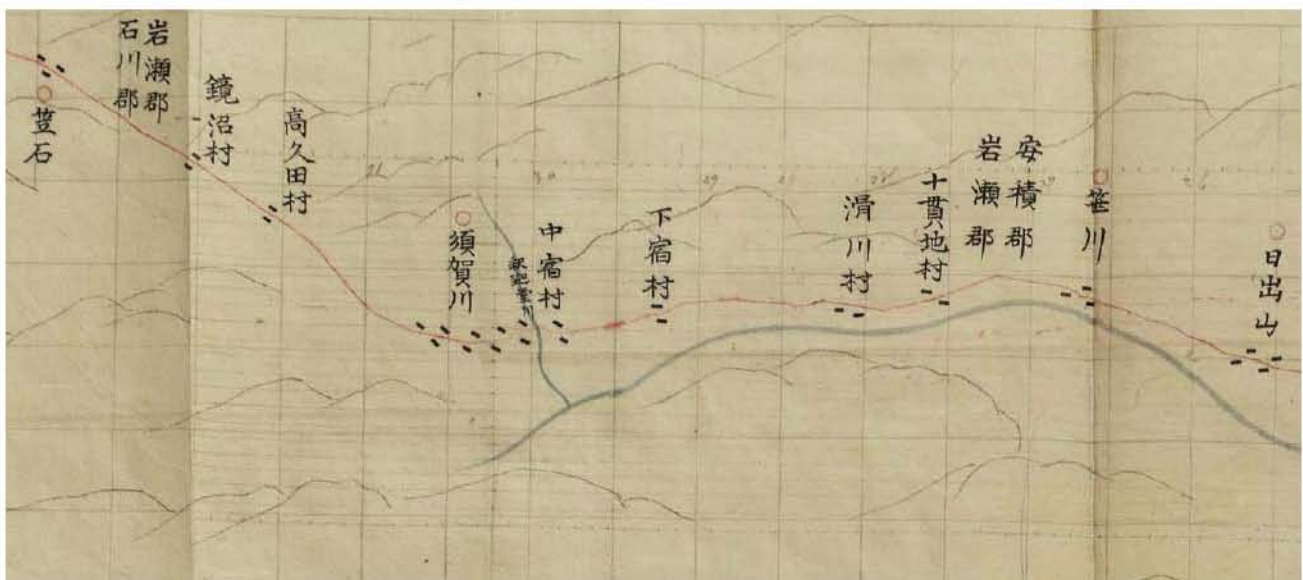 日出山
笹川
安積郡
岩瀬郡
十貫地村
滑川村
下宿村
中宿村
釈迦堂川
須賀川
高久田村
鏡沼村
岩瀬郡
石川郡
笠石
29